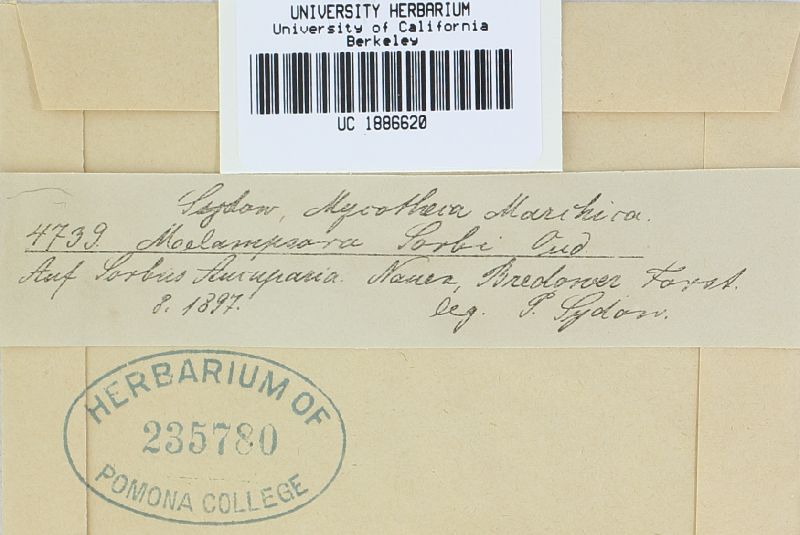 UNIVERSITY HERBARIUM
University of California
Berkeley
UC 1886620
Sydow, Mycotheca Marchica.
4739. Melampsora Sorbi Oud
Auf Sorbus Aucuparia. Nauen, Bredower Forst.
8. 1897. leg. P. Sydow.
HERBARIUM OF
235780
POMONA COLLEGE